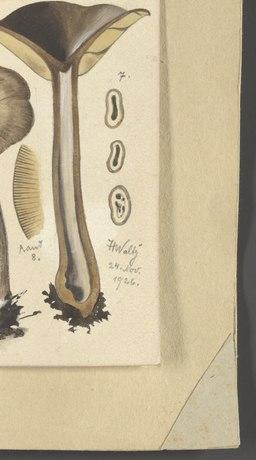 7.
Rand
8.
HWaltÿ
24. Nov.
1926.